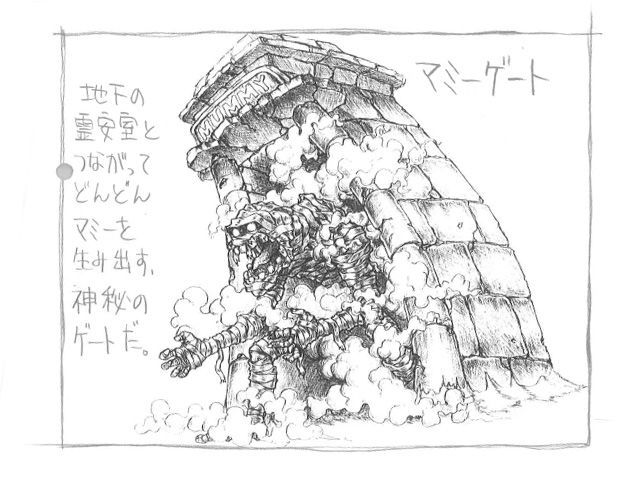 マミーゲート
MUMMY
地下の
霊安室と
つながって
どんどん
マミーを
生み出す、
神秘の
ゲートだ。